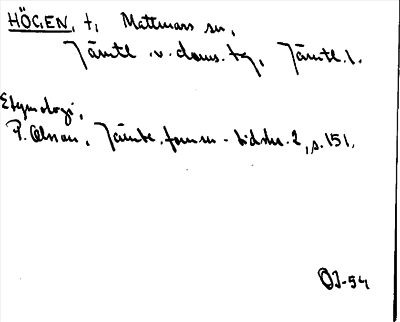 HÖGEN, t, Mattmars sn,
Jämtl. v. doms. tg, Jämtl. l.
Etymologi,
P. Olsson, Jämtl. fornm-tidskr. 2, s. 151.
OJ-54